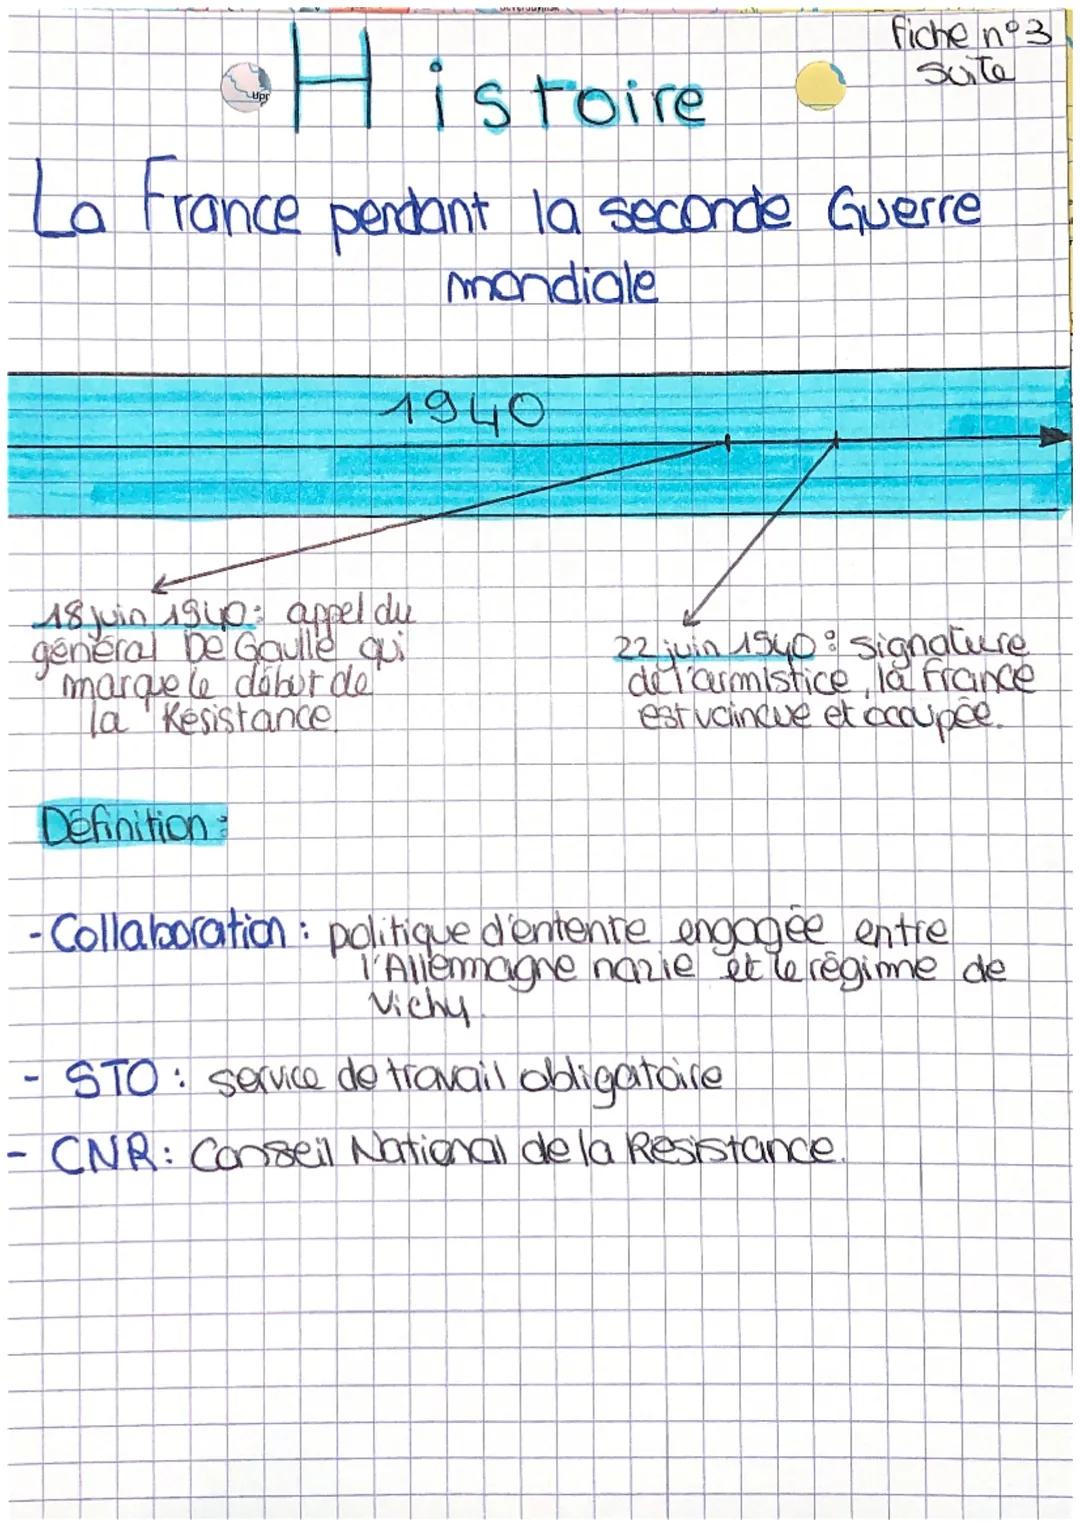 fiche n°3
suite
Histoire
La France pendant la seconde Guerre
mondiale
1940
18 juin 1940 : appel du
général De Gaulle qui
marque le début de
la Résistance.
22 juin 1940 : signature
de l'armistice, la France
est vaincue et occupée.
Définition :
- Collaboration : politique d'entente engagée entre
l'Allemagne nazie et le régime de
Vichy.
- STO : service de travail obligatoire
- CNR : Conseil National de la Résistance.